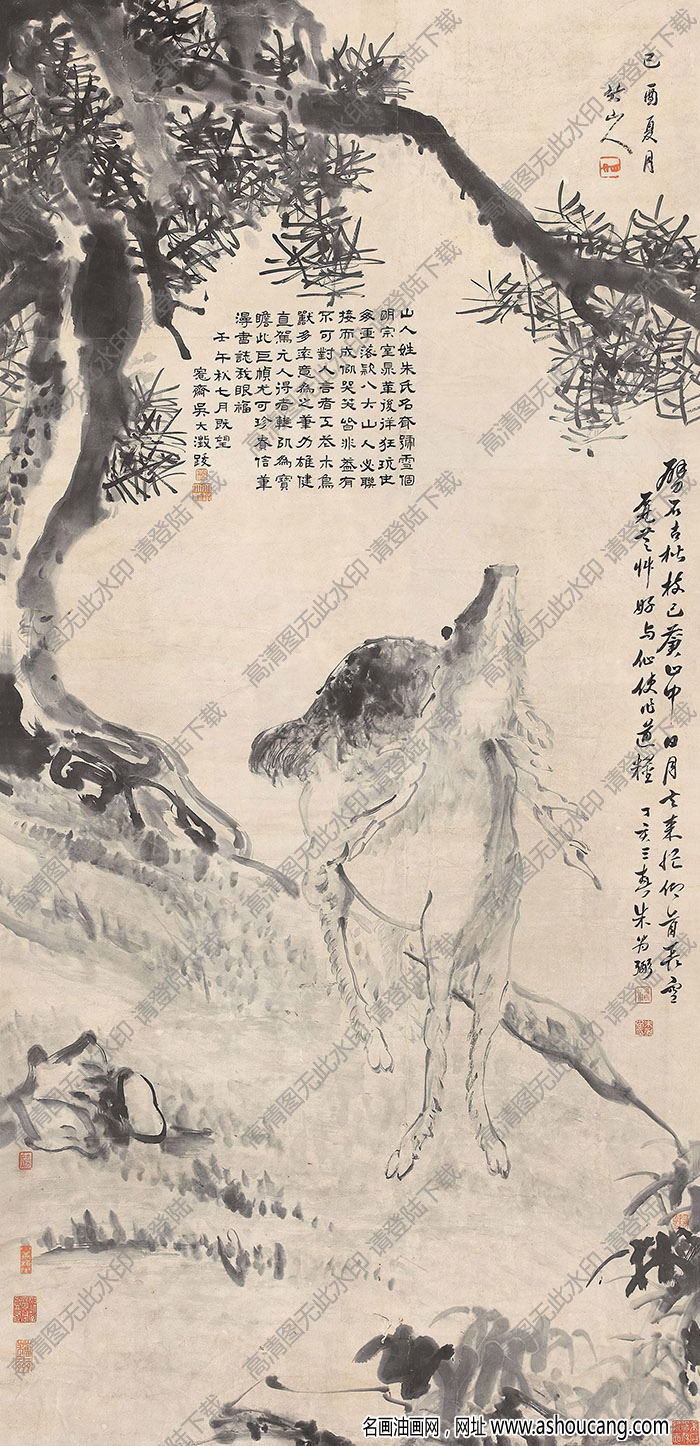 己酉夏月
八大山人
山人姓朱氏名耷號雪個
明宗室鼎革後佯狂玩世
每畫落款八大山人必聯
接而成似哭笑皆非蓋有
不可對人言者工花木鳥
獸多率意為之筆力雄健
直駕元人得者輒訊為寶
瞻此巨幀尤可珍眷信筆
漫書誌我眼福
壬午秋七月既望
愙齋吳大澂跋
劈石古松枝已黃山中日月去來忙仰首長空
芝草好与仙使作道糧 丁亥三真朱為弼
高清图无此水印 请登陆下载
名画油画网，网址 www.ashoucang.com